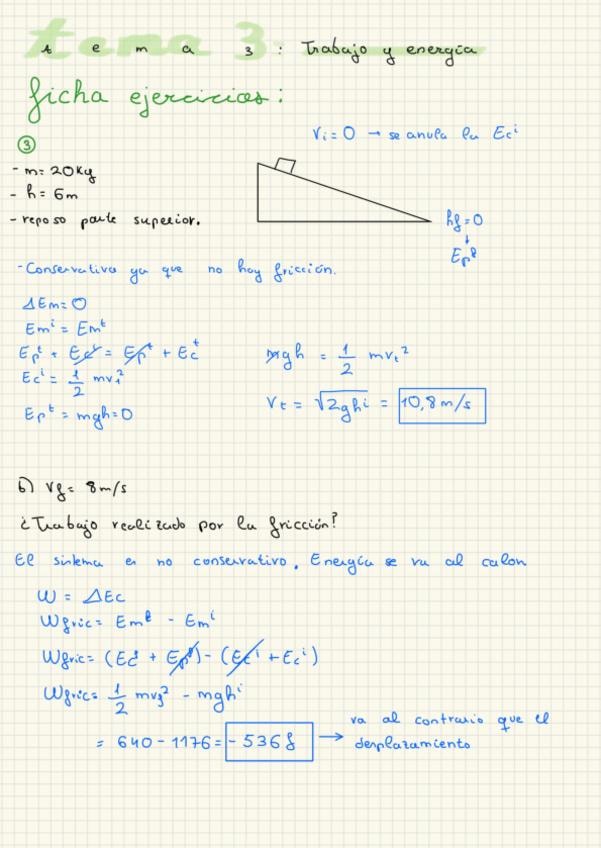 tema 3: Trabajo y energía
ficha ejercicios:
Vi = 0 → se anula la Ec^i
③
- m = 20Kg
- h = 6m
- reposo parte superior.
hf = 0
↓
Ep^f
- Conservativa ya que no hay fricción.
ΔEm = 0
Em^i = Em^t
Ep^t + Ec^t = Ep^t + Ec^t
mgh = 1/2 mv_t²
Ec^i = 1/2 mv_1²
V_t = √2gh^i = 10,8 m/s
Ep^t = mgh = 0
b) Vf = 8m/s
¿Trabajo realizado por la fricción?
El sistema es no conservativo. Energía se va al calon
W = ΔEc
Wfric = Em^f - Em^i
Wfric = (Ec^f + Ep^f) - (Ec^i + Ec^i)
Wfric = 1/2 mv_f² - mgh^i
= 640 - 1176 = - 536 J
→ va al contrario que el
desplazamiento